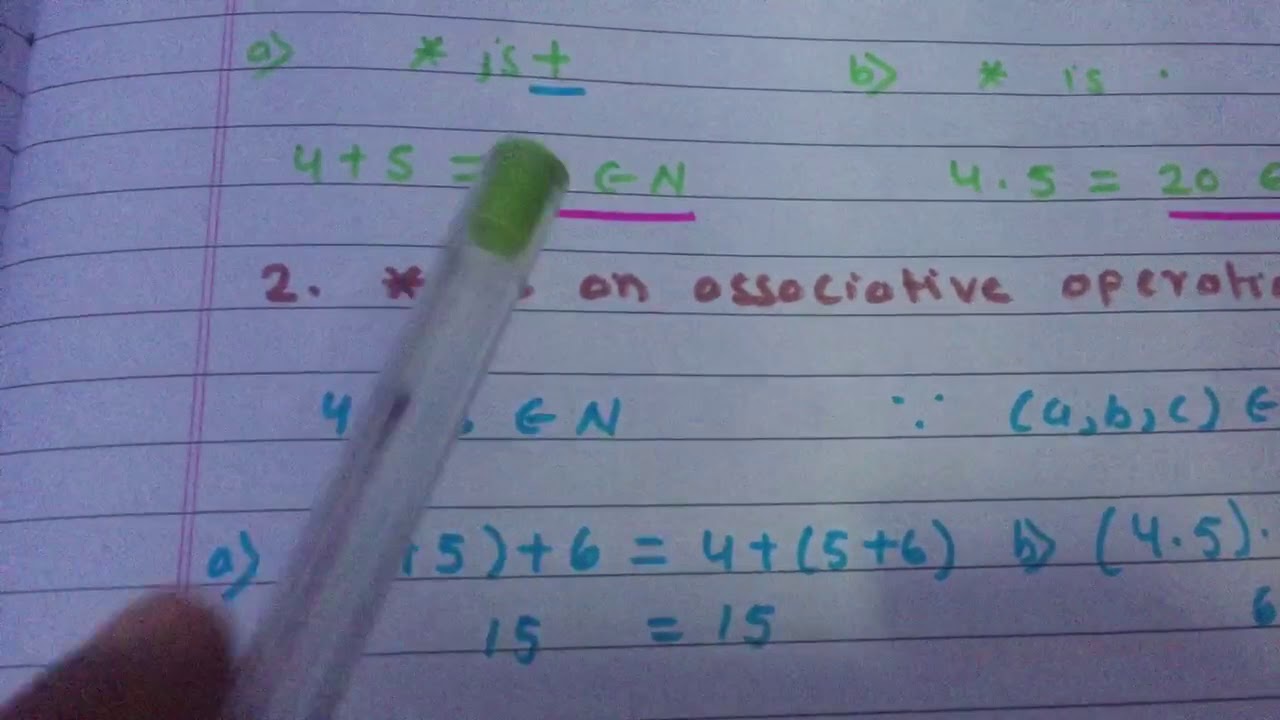 a) * is + b) * is .
4 + 5 = ∈ N 4 . 5 = 20 ∈
2. * an associative
4 ∈ N ∵ (a, b, c) ∈
a) 5) + 6 = 4 + (5 + 6) b) (4 . 5) .
15 = 15 6